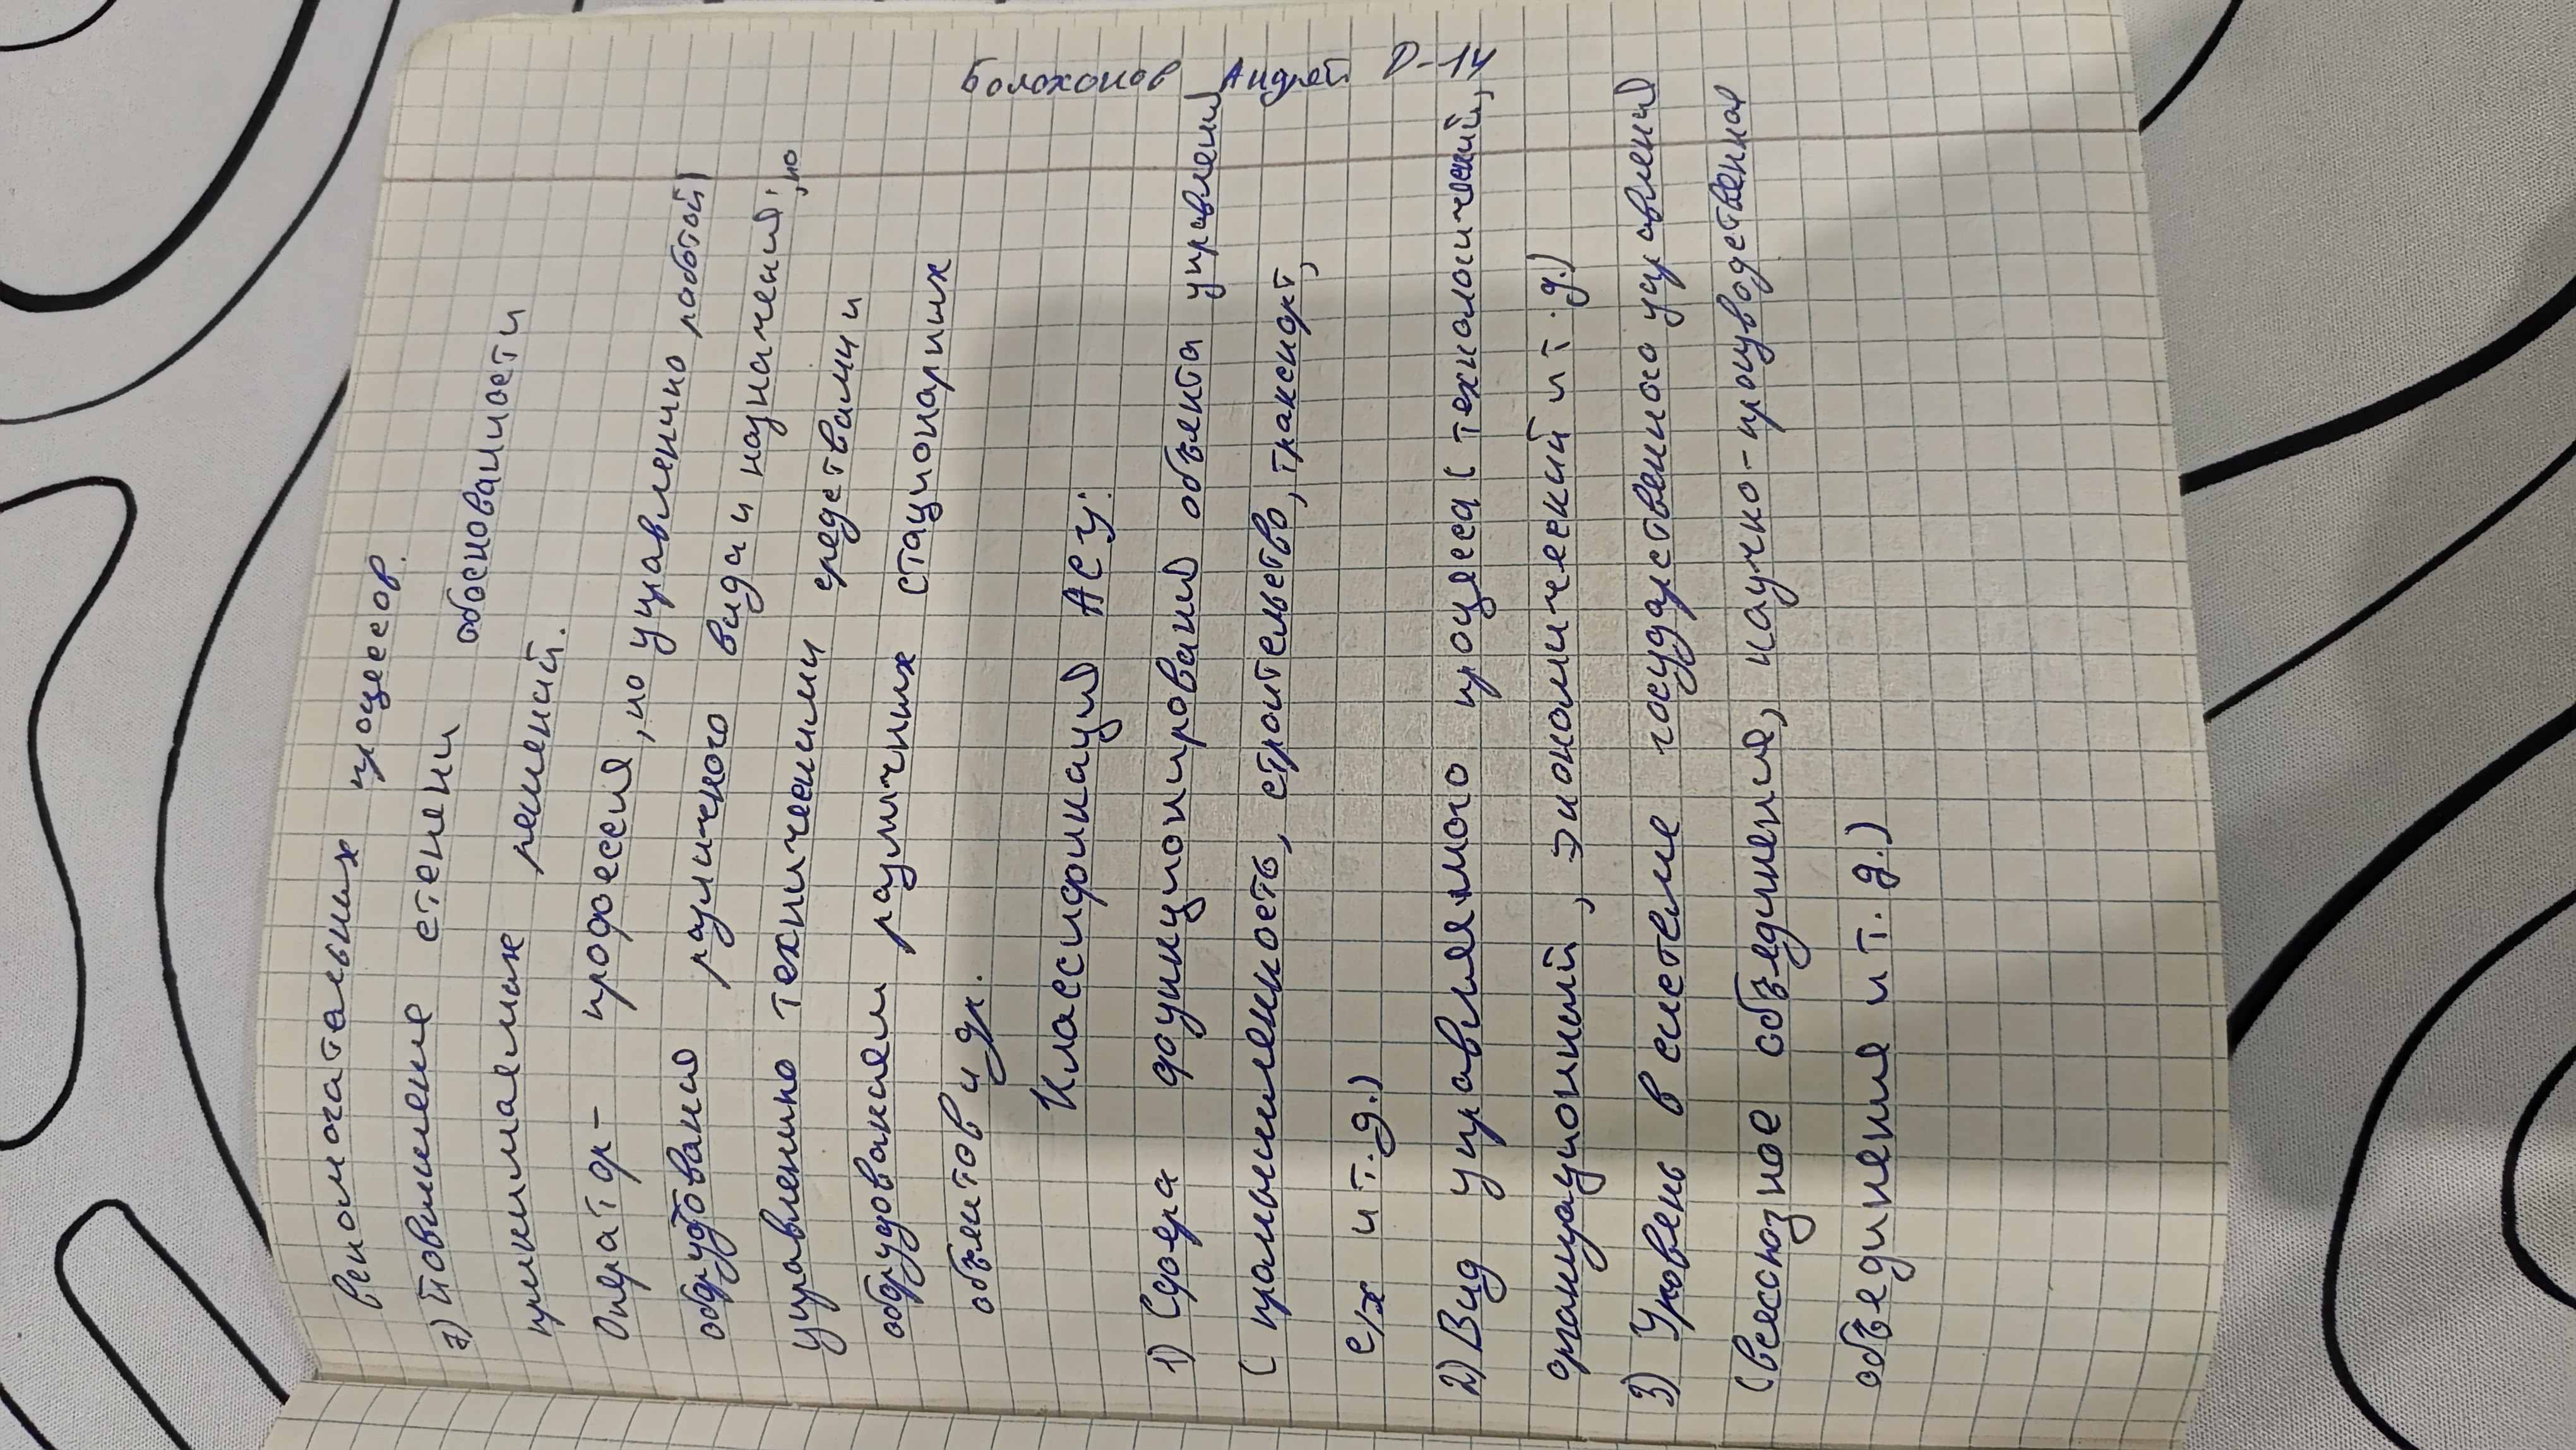 Болохонов Андрей Р-14
вспомогательных процессов.
7) Повышение степени обоснованости
принимаемых решений.
Оператор- професси��, по управлению работой
оборудования различного вида и назначения, по
управлению техническими средствами и
оборудованием различных стационарных
объектов и др.
Классификация АСУ:
1) Сфера функционирования объекта управления
(промышленность, строительство, транспорт,
с/х и т.д.)
2) Вид управляемого процесса (технологический,
организационный, экономический и т.д.)
3) Уровень в системе государственного управления
(всесоюзное объединения, научно-производственная
объединения и т.д.)